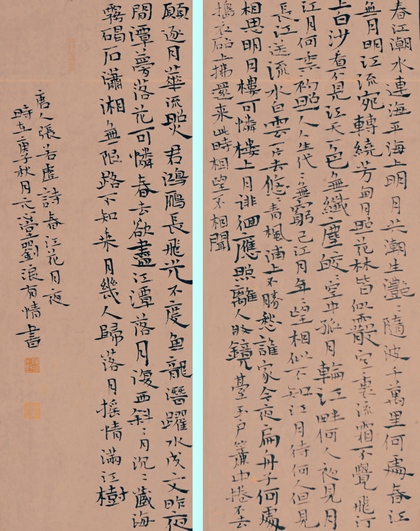 春江潮水連海平海上明月共潮生灩〻隨波千萬里何處春江
無月明江流宛轉繞芳甸月照花林皆似霰空裏流霜不覺飛汀
上白沙看不見江天一色無纖塵皎〻空中孤月輪江畔何人初見月
江月何年初照人人生代〻無窮已江月年〻望相似不知江月待何人但見
長江送流水白雲一片去悠〻青楓浦上不勝愁誰家今夜扁舟子何處
相思明月樓可憐樓上月徘徊應照離人妝鏡臺玉戶簾中捲不去
搗衣砧上拂還來此時相望不相聞
願逐月華流照君鴻雁長飛光不度魚龍潛躍水成文昨夜
閒潭夢落花可憐春去欲盡江潭落月復西斜〻月沉〻藏海
霧碣石瀟湘無限路不知乘月幾人歸落月搖情滿江樹
唐人張若虛詩春江花月夜
時在庚子秋月漳劉浪有情書